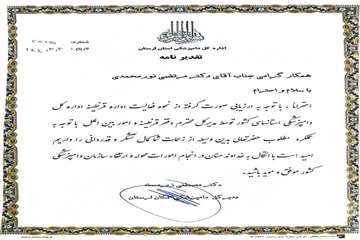 اداره کل دامپزشکی استان لرستان
تقدیر نامه
همکار گرامی جناب آقای دکتر مرتضی نورمحمدی
با سلام و احترام
احتراماً ، با توجه به ارزیابی صورت گرفته از نحوه فعالیت اداره قرنطینه اداره کل
دامپزشکی استانهای کشور توسط مدیر کل محترم دفتر قرنطینه و امور بین الملل با توجه به
عملکرد مطلوب حضرتعالی بدین وسیله از زحمات شما کمال تشکر و قدردانی را داریم
امید است با اتکال به خداوند منان در انجام امورات محوله و ارتقاء سازمان دامپزشکی
کشور موفق و موید باشید.
دکتر مصطفی
مدیر کل دامپزشکی استان لرستان